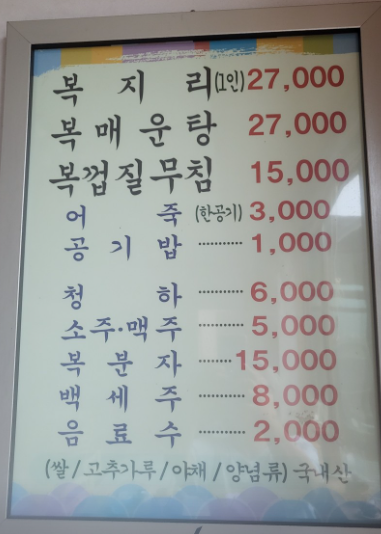 복 지 리(1인) 27,000
복 매 운 탕 27,000
복껍질무침 15,000
어 죽 (한공기) 3,000
공 기 밥 ··········· 1,000
청 하 ··········· 6,000
소주·맥주 ··········· 5,000
복 분 자 ········ 15,000
백 세 주 ··········· 8,000
음 료 수 ··········· 2,000
(쌀/고추가루/야채/양념류) 국내산